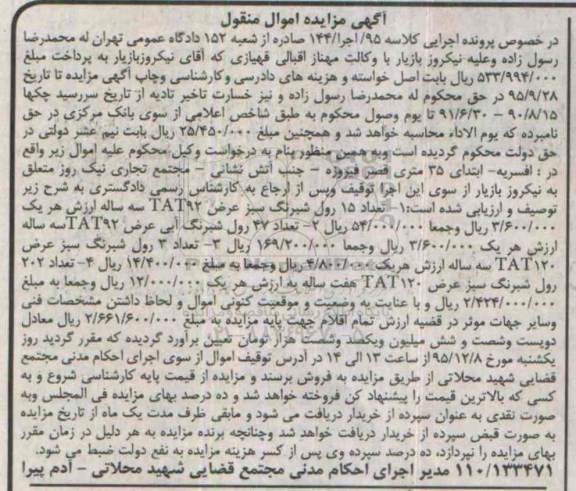 آگهی مزایده اموال منقول
در خصوص پرونده اجرایی کلاسه ۹۵/ اجرا/۱۴۴ صادره از شعبه ۱۵۲ دادگاه عمومی تهران له محمدرضا
رسول زاده وعلیه نیکروز بازیار با وکالت مهناز اقبالی قهیازی که آقای نیکروزبازیار به پرداخت مبلغ
۵۳۳/۹۹۴/۰۰۰ ریال بابت اصل خواسته و هزینه های دادرسی وکارشناسی وچاپ آگهی مزایده تا تاریخ
۹۵/۹/۲۸ در حق محکوم له محمدرضا رسول زاده و نیز خسارت تاخیر تادیه از تاریخ سررسید چکها
۹۰/۸/۱۵ - ۹۱/۶/۳۰ تا یوم وصول محکوم به طبق شاخص اعلامی از سوی بانک مرکزی در حق
نامبرده که یوم الاداء محاسبه خواهد شد و همچنین مبلغ ۲۵/۴۵۰/۰۰۰ ریال بابت نیم عشر دولتی در
حق دولت محکوم گردیده است وبه همین منظور بنام به درخواست وکیل محکوم علیه اموال زیر واقع
در : افسریه- ابتدای ۳۵ متری قصر فیروزه - جنب آتش نشانی - مجتمع تجاری نیک روز متعلق
به نیکروز بازیار از سوی این اجرا توقیف وپس از ارجاع به کارشناس رسمی دادگستری به شرح زیر
توصیف و ارزیابی شده است:۱- تعداد ۱۵ رول شبرنگ سبز عرض TAT۹۲ سه ساله ارزش هر یک
۳/۶۰۰/۰۰۰ ریال وجمعا ۵۴/۰۰۰/۰۰۰ ریال ۲- تعداد ۴۷ رول شبرنگ آبی عرض TAT۹۲سه ساله
ارزش هر یک ۳/۶۰۰/۰۰۰ ریال وجمعا ۱۶۹/۲۰۰/۰۰۰ ریال ۳- تعداد ۳ رول شبرنگ سبز عرض
TAT۱۲۰ سه ساله ارزش هریک ۴/۸۰۰/۰۰۰ ریال وجمعا به مبلغ ۱۴/۴۰۰/۰۰۰ ریال ۴- تعداد ۲۰۲
رول شبرنگ سبز عرض TAT۱۲۰ هفت ساله به ارزش هر یک ۱۲/۰۰۰/۰۰۰ ریال وجمعا به مبلغ
۲/۴۲۴/۰۰۰/۰۰۰ ریال و با عنایت به وضعیت و موقعیت کنونی اموال و لحاظ داشتن مشخصات فنی
وسایر جهات موثر در قضیه ارزش تمام اقلام جهت پایه مزایده به مبلغ ۲/۶۶۱/۶۰۰/۰۰۰ ریال معادل
دویست وشصت و شش میلیون ویکصد وشصت هزار تومان تعیین برآورد گردیده که مقرر گردید روز
یکشنبه مورخ ۹۵/۱۲/۸ از ساعت ۱۳ الی ۱۴ در آدرس توقیف اموال از سوی اجرای احکام مدنی مجتمع
قضایی شهید محلاتی از طریق مزایده به فروش برسند و مزایده از قیمت پایه کارشناسی شروع و به
کسی که بالاترین قیمت را پیشنهاد کن فروخته خواهد شد و ده درصد بهای مزایده فی المجلس وبه
صورت نقدی به عنوان سپرده از خریدار دریافت می شود و مابقی ظرف مدت یک ماه از تاریخ مزایده
به صورت قبض سپرده از خریدار دریافت خواهد شد وچنانچه برنده مزایده به هر دلیل در زمان مقرر
بهای مزایده را نپردازد، ده درصد سپرده وی پس از کسر هزینه مزایده به نفع دولت ضبط می شود.
۱۱۰/۱۳۳۴۷۱ مدیر اجرای احکام مدنی مجتمع قضایی شهید محلاتی - آدم پیرا